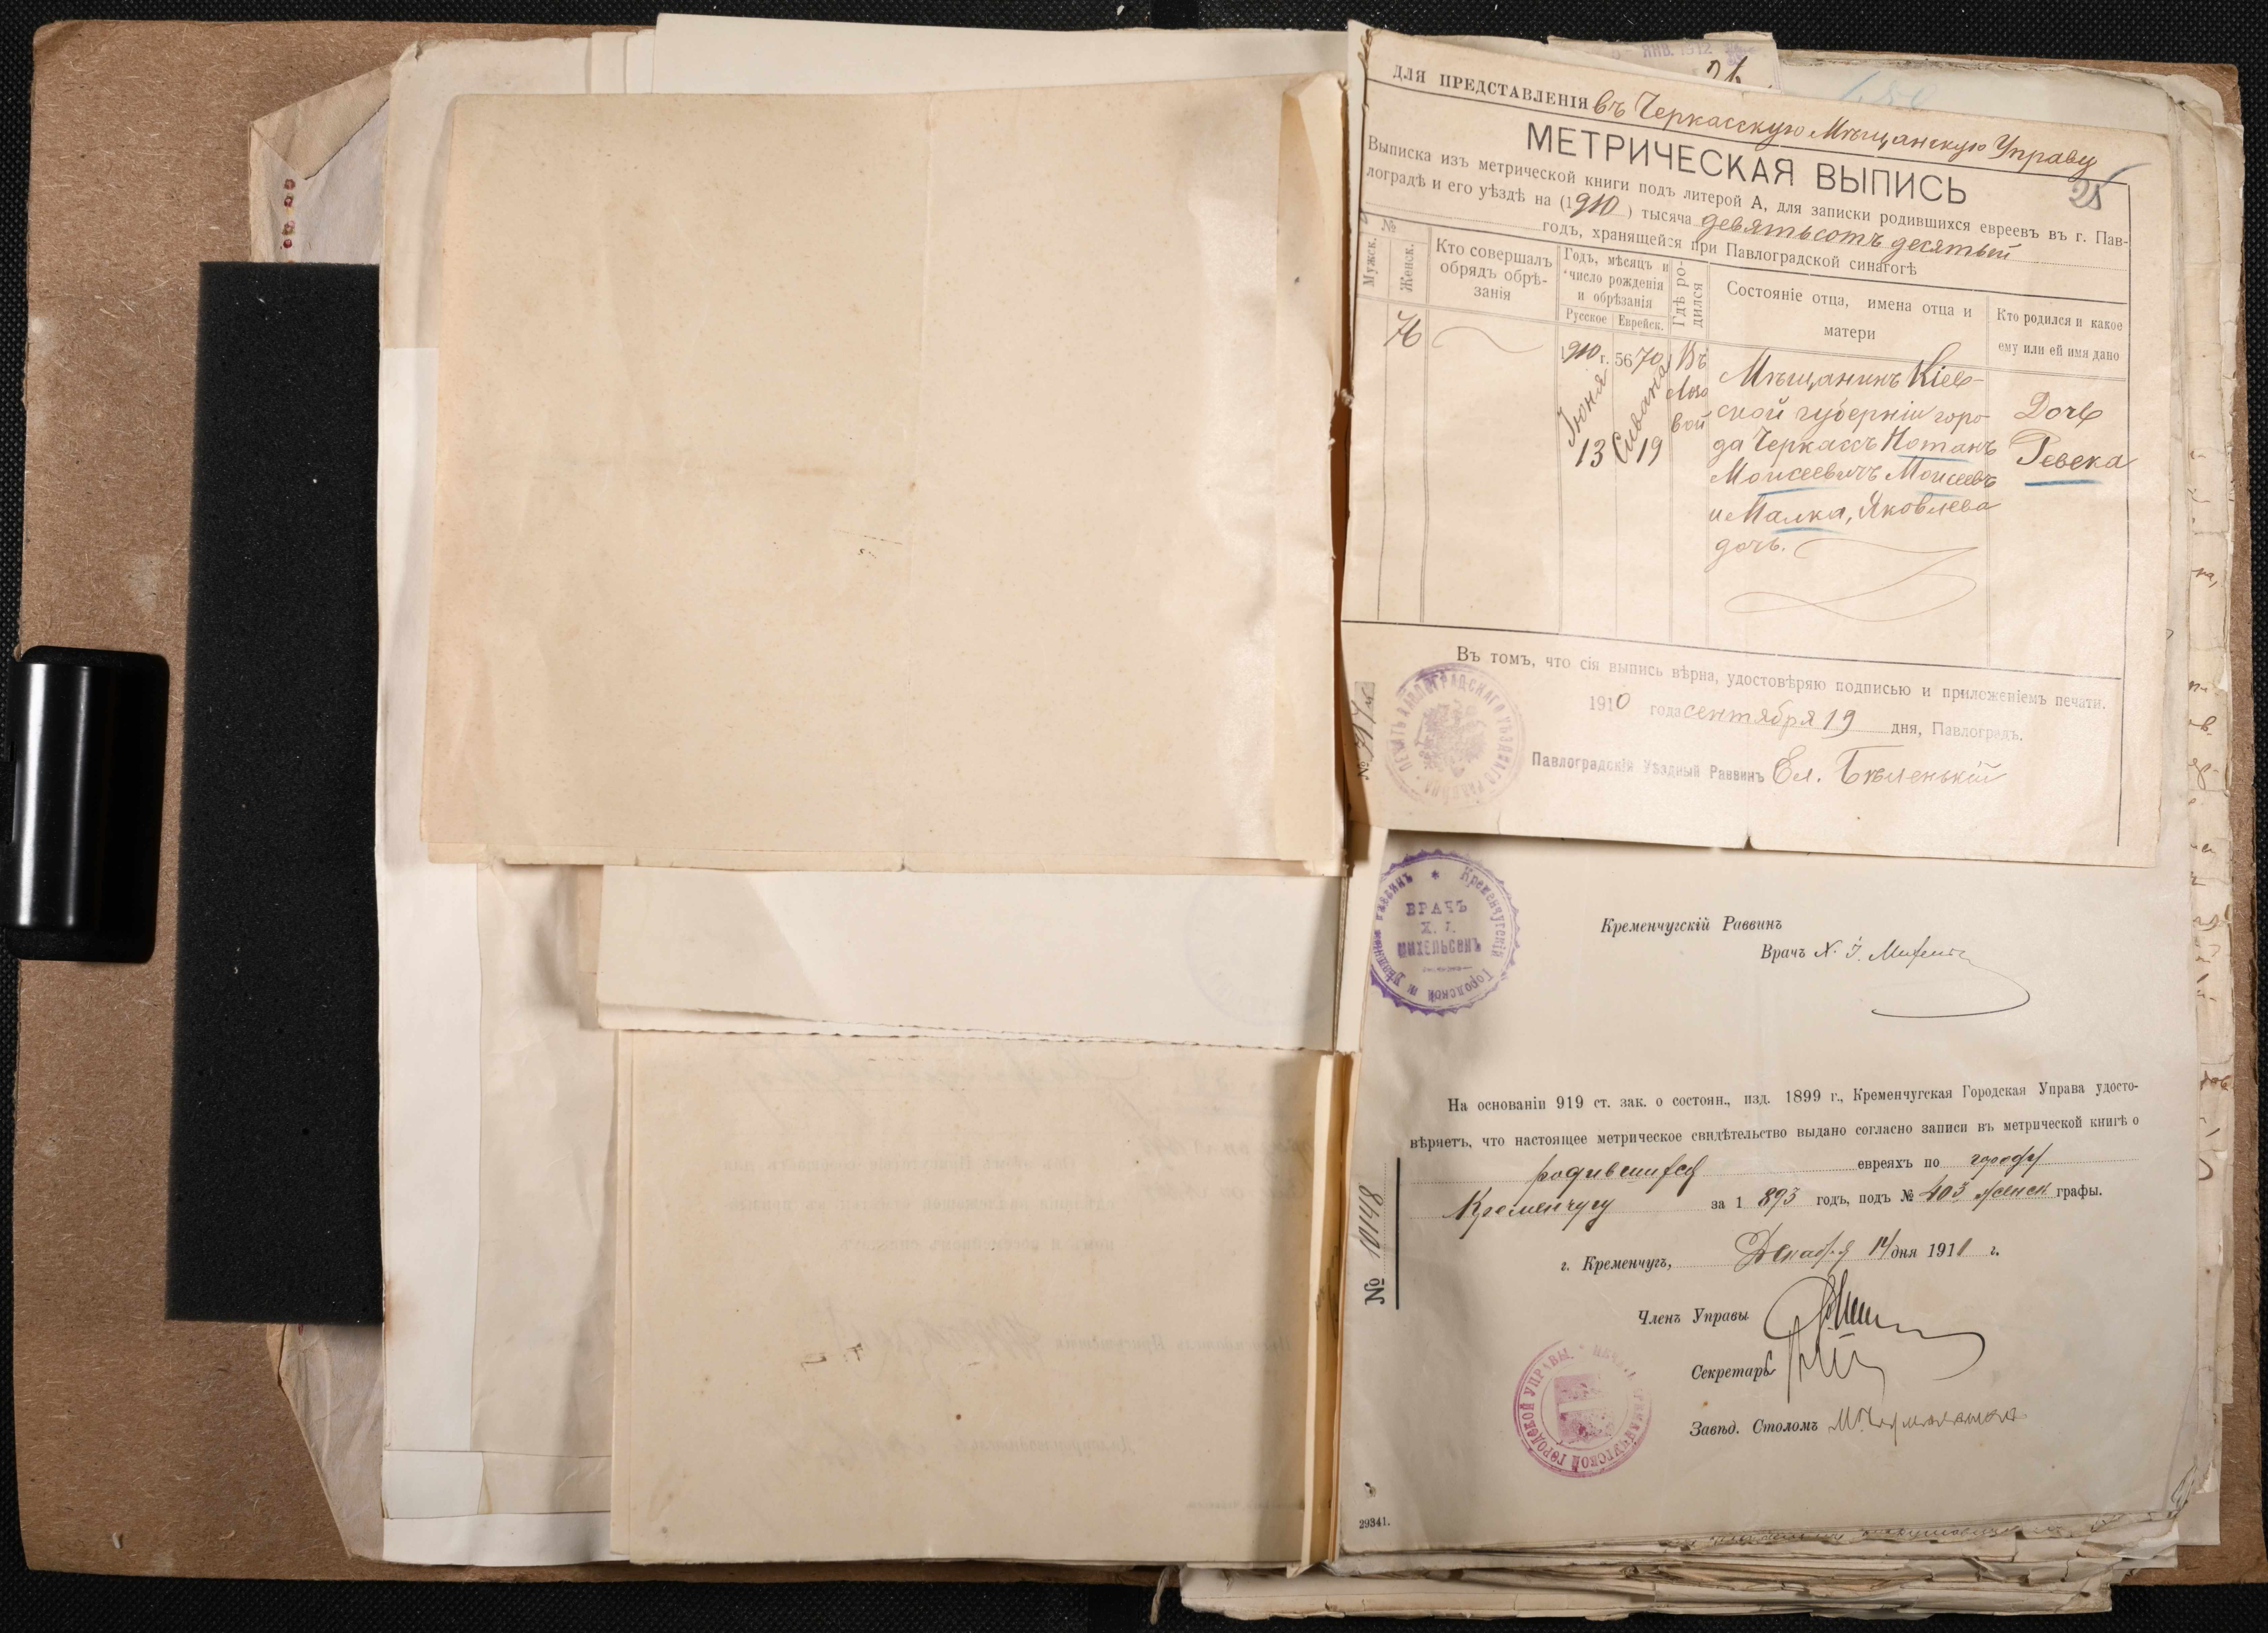 ЯНВ. 1912
ДЛЯ ПРЕДСТАВЛЕНІЯ въ Черкасскую Мѣщанскую Управу
МЕТРИЧЕСКАЯ ВЫПИСЬ
25
Выписка изъ метрической книги подъ литерой А, для записки родившихся евреевъ въ г. Пав-
лоградѣ и его уѣздѣ на (1910) тысяча девятьсотъ десятый
годъ, хранящейся при Павлоградской синагогѣ
№
Мужск.
Женск.
Кто совершалъ
обрядъ обрѣ-
занія
Годъ, мѣсяцъ и
число рожденія
и обрѣзанія
Русское
Еврейск.
Гдѣ ро-
дился
Состояніе отца, имена отца и
матери
Кто родился и какое
ему или ей имя дано
76
1910 г.
Іюня
13
5670
Сивана
19
Въ
Лозо
вой
Мѣщанинъ Кіев-
ской губерніи горо-
да Черкассъ Нотанъ
Моисеевичъ Моисеевъ
и Малка, Яковлева
дочь.
Дочь
Ревека
Въ томъ, что сія выпись вѣрна, удостовѣряю подписью и приложеніемъ печати.
1910 года сентября 19 дня, Павлоградъ.
Павлоградскій Уѣздный Раввинъ Ел. Бѣленькій
ПЕЧАТЬ ПАВЛОГРАДСКАГО УѢЗДНАГО РАВВИНА
№
Кременчугскій Городской и Уѣздный Раввинъ
ВРАЧЪ
Х. І.
МИХЕЛЬСОНЪ
Кременчугскій Раввинъ
Врачъ Х. І.
На основаніи 919 ст. зак. о состоян., изд. 1899 г., Кременчугская Городская Управа удосто-
вѣряетъ, что настоящее метрическое свидѣтельство выдано согласно записи въ метрической книгѣ о
родившихся евреяхъ по городу
Кременчугу за 1893 годъ, подъ № 403 женск графы.
г. Кременчугъ, Декабря 14 дня 1911 г.
№ 10148
Членъ Управы
Секретарь
Завѣд. Столомъ
ПЕЧАТЬ КРЕМЕНЧУГСКОЙ ГОРОДСКОЙ УПРАВЫ
29341.